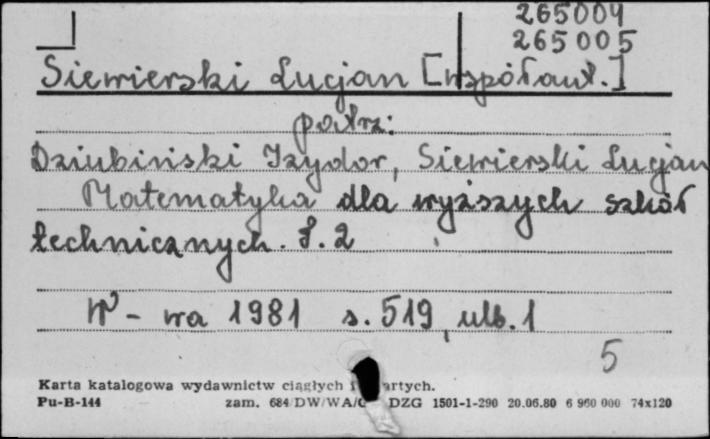 265004
265005
Siewierski Lucjan [współaut.]
patrz:
Dziubiński Izydor, Siewierski Lucjan
Matematyka dla wyższych szkół
technicznych. T. 2
W-wa 1981 s. 519, ulb. 1
5
Karta katalogowa wydawnictw ciągłych i
Pu-B-144 zam. 684/DW/WA/ DZG 1501-1-290 20.06.80 6 960 000 74x120